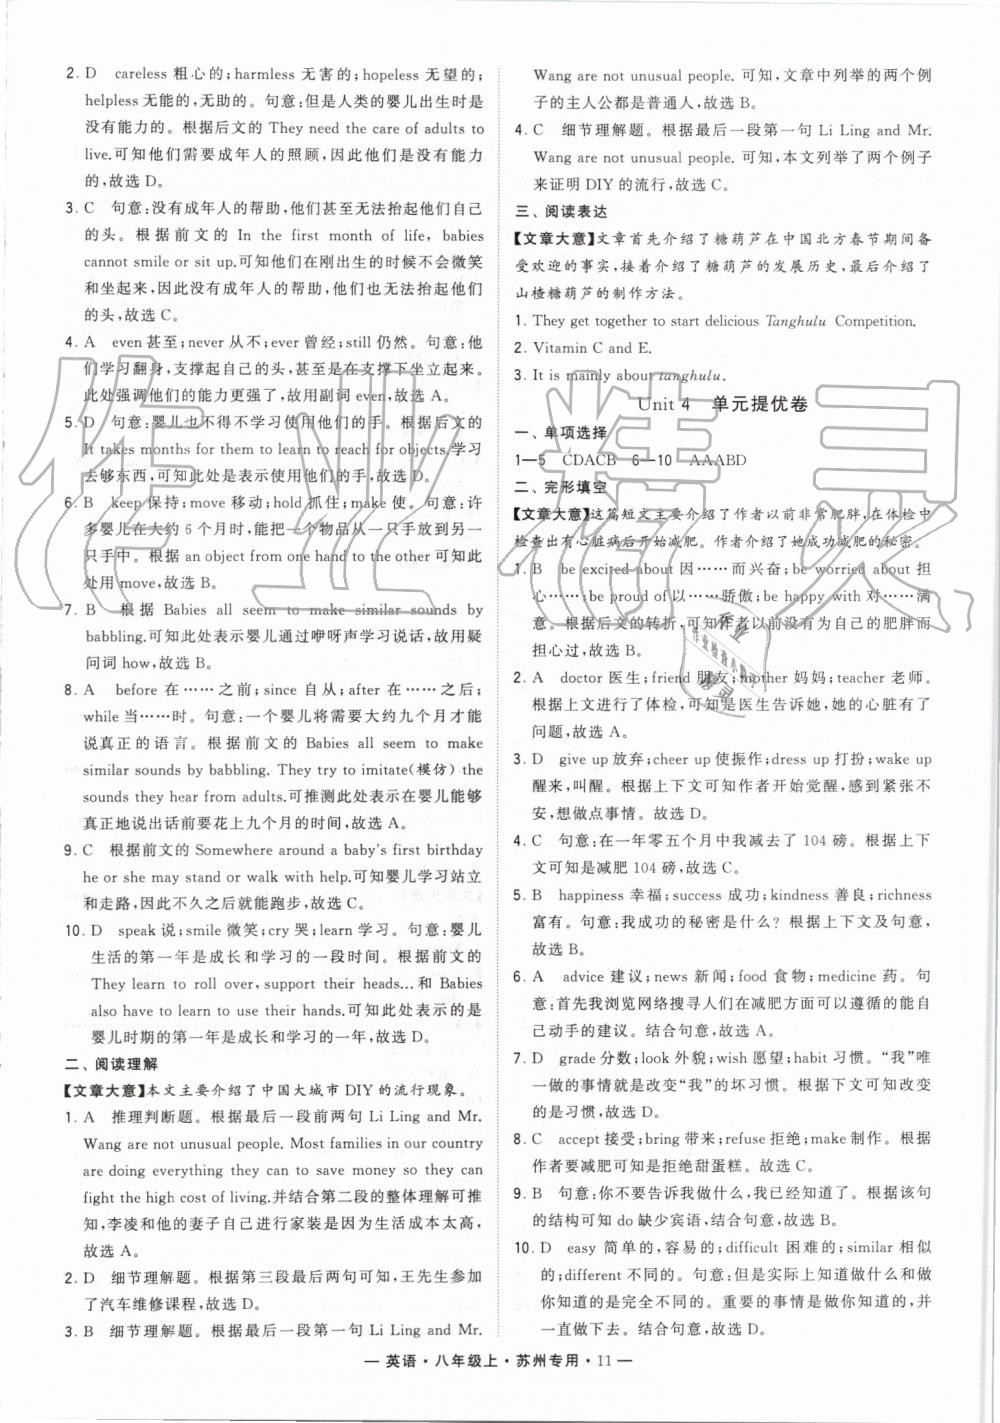 2. D　careless 粗心的;harmless 无害的;hopeless 无望的;
helpless 无能的,无助的。句意:但是人类的婴儿出生时是
没有能力的。根据后文的 They need the care of adults to
live.可知他们需要成年人的照顾,因此他们是没有能力
的,故选 D。
3. C　句意:没有成年人的帮助,他们甚至无法抬起他们
的头。根据前文的 In the first month of life, babies
cannot smile or sit up.可知他们在刚出生的时候不会微笑
和坐起来,因此没有成年人的帮助,他们无法抬起他们
的头,故选 C。
4. A　even甚至;never 从不;ever 曾经;still 仍然。句意:他
们学习翻身,支撑起自己的头,甚至在支撑下坐起来。
此处强调他们的能力更强了,故用副词 even,故选 A。
5. D　句意:婴儿也不得不学习使用他们的手。根据后文的
It takes months for them to learn to reach for objects.学习
去够东西,可知此处是表示使用他们的手,故选 D。
6. B　keep 保持;move 移动;hold 抓住;make 使。句意:许
多婴儿在大约 6 个月时,能把一个物品从一只手放到另一
只手中。根据 an object from one hand to the other 可知此
处用 move,故选 B。
7. B　根据 Babies all seem to make similar sounds by
babbling.可知此处表示婴儿通过咿呀声学习说话,故用疑
问词 how,故选 B。
8. A　before 在……之前;since 自从;after 在……之后;
while 当……时。句意:一个婴儿将需要大约九个月才能
说真正的语言。根据前文的 Babies all seem to make
similar sounds by babbling. They try to imitate(模仿) the
sounds they hear from adults.可推测此处表示在婴儿能够
真正地说出话前要花上九个月的时间,故选 A。
9. C　根据前文的 Somewhere around a baby's first birthday
he or she may stand or walk with help.可知婴儿学习站立
和走路,因此不久之后就能跑步,故选 C。
10. D　speak 说;smile 微笑;cry 哭;learn 学习。句意:婴儿
生活的第一年是成长和学习的一段时间。根据前文的
They learn to roll over, support their heads…和 Babies
also have to learn to use their hands.可知此处表示的是
婴儿时期的第一年是成长和学习的一年,故选 D。
二、阅读理解
【文章大意】本文主要介绍了中国大城市 DIY 的流行现象。
1. A　推理判断题。根据最后一段前两句 Li Ling and Mr.
Wang are not unusual people. Most families in our country
are doing everything they can to save money so they can
fight the high cost of living.并结合第二段的整体理解可推
知,李凌和他的妻子自己进行家装是因为生活成本太高,
故选 A。
2. D　细节理解题。根据第三段最后两句可知,王先生参加
了汽车维修课程,故选 D。
3. B　细节理解题。根据最后一段第一句 Li Ling and Mr.
Wang are not unusual people. 可知,文章中列举的两个例
子的主人公都是普通人,故选 B。
4. C　细节理解题。根据最后一段第一句 Li Ling and Mr.
Wang are not unusual people. 可知,本文列举了两个例子
来证明 DIY 的流行,故选 C。
三、阅读表达
【文章大意】文章首先介绍了糖葫芦在中国北方春节期间备
受欢迎的事实,接着介绍了糖葫芦的发展历史,最后介绍了
山楂糖葫芦的制作方法。
1. They get together to start delicious Tanghulu Competition.
2. Vitamin C and E.
3. It is mainly about tanghulu.
Unit 4　单元提优卷
一、单项选择
1—5　CDACB　6—10　AAABD
二、完形填空
【文章大意】这篇短文主要介绍了作者以前非常肥胖,在体检中
检查出有心脏病后开始减肥。作者介绍了她成功减肥的秘密。
1. B　be excited about 因……而兴奋;be worried about 担
心……;be proud of 以……骄傲;be happy with 对……满
意。根据后文的转折,可知作者以前没有为自己的肥胖而
担心过,故选 B。
2. A　doctor 医生;friend 朋友;mother 妈妈;teacher 老师。
根据上文进行了体检,可知是医生告诉她,她的心脏有了
问题,故选 A。
3. D　give up 放弃;cheer up 使振作;dress up 打扮;wake up
醒来,叫醒。根据上下文可知作者开始觉醒,感到紧张不
安,想做点事情。故选 D。
4. C　句意:在一年零五个月中我减去了 104 磅。根据上下
文可知是减肥 104 磅。故选 C。
5. B　happiness 幸福;success 成功;kindness 善良;richness
富有。句意:我成功的秘密是什么? 根据上下文及句意,
故选 B。
6. A　advice 建议;news 新闻;food 食物;medicine 药。句
意:首先我浏览网络搜寻人们在减肥方面可以遵循的能自
己动手的建议。结合句意,故选 A。
7. D　grade分数;look 外貌;wish 愿望;habit 习惯。“我”唯
一做的事情就是改变“我”的坏习惯。根据下文可知改变
的是习惯,故选 D。
8. C　accept 接受;bring 带来;refuse 拒绝;make 制作。根据
作者要减肥可知是拒绝甜蛋糕。故选 C。
9. B　句意:你不要告诉我做什么,我已经知道了。根据该句
的结构可知 do 缺少宾语,结合句意,故选 B。
10. D　easy 简单的,容易的;difficult 困难的;similar 相似
的;different 不同的。句意:但是实际上知道做什么和做
你知道的是完全不同的。重要的事情是做你知道的,并
且一直做下去。故选 D。
— 英语·八年级上·苏州专用·11 —
作业精灵